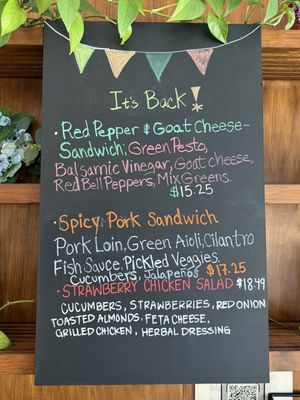 It's Back!
• Red Pepper & Goat Cheese-
Sandwich: Green Pesto,
Balsamic Vinegar, Goat cheese,
Red Bell Peppers, Mix Greens.
$15.25
• Spicy Pork Sandwich
Pork Loin, Green Aioli, Cilantro
Fish Sauce, Pickled Veggies,
Cucumbers, Jalapeños $17.25
• STRAWBERRY CHICKEN SALAD $18.49
CUCUMBERS, STRAWBERRIES, RED ONION
TOASTED ALMONDS, FETA CHEESE,
GRILLED CHICKEN, HERBAL DRESSING